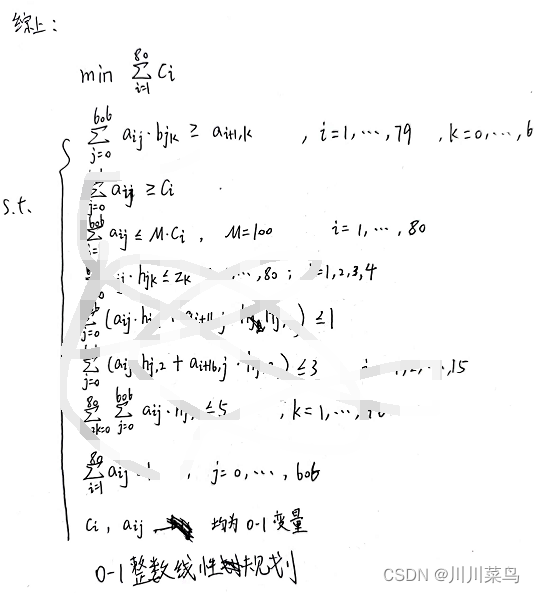 综上：
min ∑_{i=1}^{80} Ci
s.t.
∑_{j=0}^{606} aij·bjk ≥ ai+1,k , i=1,…,79 , k=0,…,6
∑_{j=0} aij ≥ Ci
∑^{606} aij ≤ M·Ci , M=100 i=1,…,80
hjk ≤ 2k ,…,80 ; =1,2,3,4
∑_{j=0} (aij·h + ai+1 ) ≤1
∑_{j=0} (aij hj,2 + ai+16,j · ) ≤3 ,2,…,15
∑^{80} ∑_{j=0}^{606} aij· ≤5 , k=1,…,
∑_{i=1}^{80} aij , j=0,…,606
Ci , aij 均为0-1变量
0-1整数线性规划
CSDN @川川菜鸟